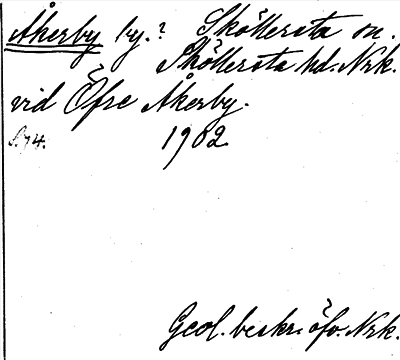 Åkerby by.? Sköllersta sn.
Sköllersta hd. Nrk.
vid Öfre Åkerby.
S. 74. 1902
Geol. beskr. öfv. Nrk.